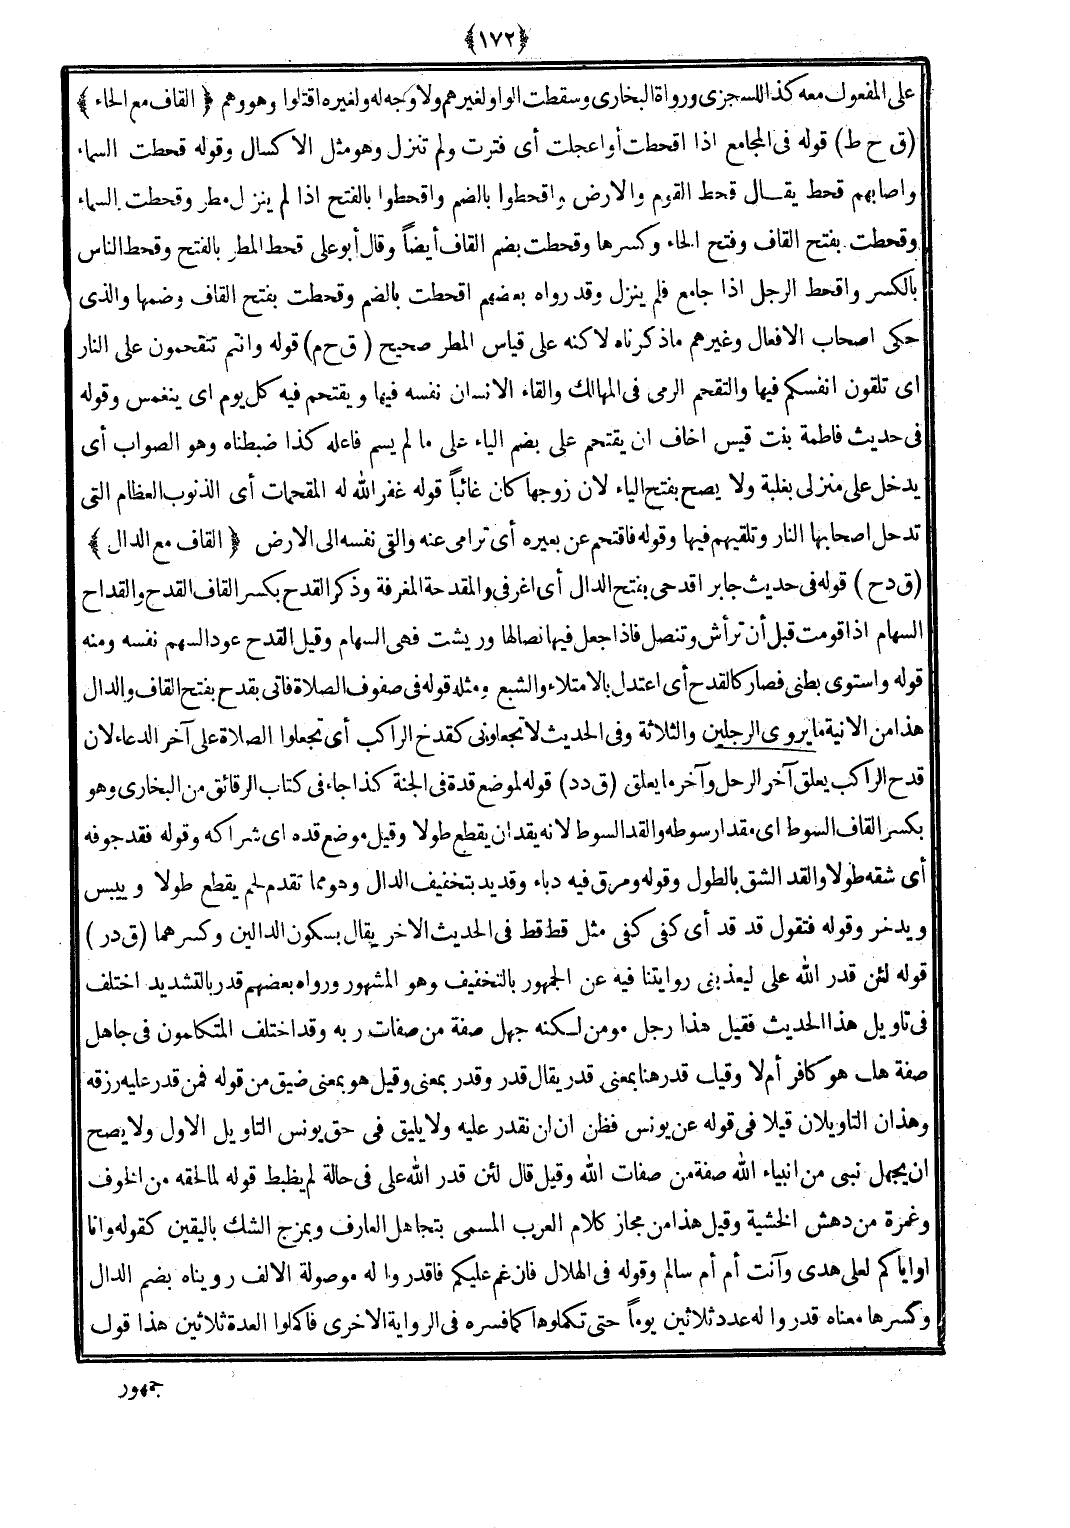 ﴿١٧٢﴾
على المفعول معه كذا للسجزى ورواة البخارى وسقطت الواو لغيرهم ولا وجه له ولغيره اقتلوا وهو وهم ﴿ القاف مع الحاء ﴾
(ق ح ط) قوله فى المجامع اذا اقحطت أو اعجلت أى فترت ولم تنزل وهو مثل الاكسال وقوله قحطت السماء
واصابهم قحط يقــال قحط القوم والارض واقحطوا بالضم واقحطوا بالفتح اذا لم ينزل مطر وقحطت السماء
وقحطت بفتح القاف وفتح الحاء وكسرها وقحطت بضم القاف أيضاً وقال أبو على قحط المطر بالفتح وقحط الناس
بالكسر واقحط الرجل اذا جامع فلم ينزل وقد رواه بعضهم اقحطت بالضم وقحطت بفتح القاف وضمها والذى
حكى اصحاب الافعال وغيرهم ماذكرناه لاكنه على قياس المطر صحيح (ق ح م) قوله وانتم تتقحمون على النار
اى تلقون انفسكم فيها والتقحم الرمى فى المهالك والقاء الانسان نفسه فيها و يقتحم فيه كل يوم اى ينغمس وقوله
فى حديث فاطمة بنت قيس اخاف ان يقتحم على بضم الياء على ما لم يسم فاعله كذا ضبطناه وهو الصواب أى
يدخل على منزلى بغلبة ولا يصح بفتح الياء لان زوجها كان غائباً قوله غفر الله له المقحمات أى الذنوب العظام التى
تدحل اصحابها النار وتلقيهم فيها وقوله فاقتحم عن بعيره أى ترامى عنه والقى نفسه الى الارض ﴿ القاف مع الدال ﴾
(ق د ح) قوله فى حديث جابر اقدحى بفتح الدال أى اغرفى والمقدحة المغرفة وذكر القدح بكسر القاف القدح والقداح
السهام اذا قومت قبل أن ترأش وتنصل فاذا جعل فيها نصالها وريشت فهى السهام وقيل القدح عود السهم نفسه ومنه
قوله واستوى بطنى فصار كالقدح أى اعتدل بالامتلاء والشبع ومثله قوله فى صفوف الصلاة فاتى بقدح بفتح القاف والدال
هذا من الانية ما يروى الرجلين والثلاثة وفى الحديث لا تجعلونى كقدح الراكب أى تجعلوا الصلاة على آخر الدعاء لان
قدح الراكب يعلق آخر الرحل وآخر ما يعلق (ق د د) قوله لموضع قدة فى الجنة كذا جاء فى كتاب الرقائق من البخارى وهو
بكسر القاف السوط اى مقدار سوطه والقد السوط لانه يقد ان يقطع طولا وقيل موضع قده اى شراكه وقوله فقد جوفه
أى شقه طولا والقد الشق بالطول وقوله ومرق فيه دباء وقديد بتخفيف الدال وهو مما تقدم لحم يقطع طولا و ييبس
ويدخر وقوله فتقول قد قد أى كفى كفى مثل قط قط فى الحديث الاخر يقال بسكون الدالين وكسرهما (ق د ر)
قوله لئن قدر الله على ليعذبنى روايتنا فيه عن الجمهور بالتخفيف وهو المشهور ورواه بعضهم قدر بالتشديد اختلف
فى تاويل هذا الحديث فقيل هذا رجل مومن لــكنه جهل صفة من صفات ربه وقد اختلف المتكلمون فى جاهل
صفة هل هو كافر أم لا وقيل قدر هنا بمعنى قدر يقال قدر وقدر بمعنى وقيل هو بمعنى ضيق من قوله فمن قدر عليه رزقه
وهذان التاويلان قيلا فى قوله عن يونس فظن ان لن نقدر عليه ولا يليق فى حق يونس التاويل الاول ولا يصح
ان يجهل نبى من انبياء الله صفة من صفات الله وقيل قال لئن قدر الله على فى حالة لم يظبط قوله لما لحقه من الخوف
وغمرة من دهش الخشية وقيل هذا من مجاز كلام العرب المسمى بتجاهل العارف وبمزج الشك باليقين كقوله وانا
او اياكم لعلى هدى وآنت أم أم سالم وقوله فى الهلال فان غم عليكم فاقدروا له موصولة الالف رويناه بضم الدال
وكسرها معناه قدروا له عدد ثلاثين يوماً حتى تكملوها كما فسره فى الرواية الاخرى فاكملوا العدة ثلاثين هذا قول
جمهور